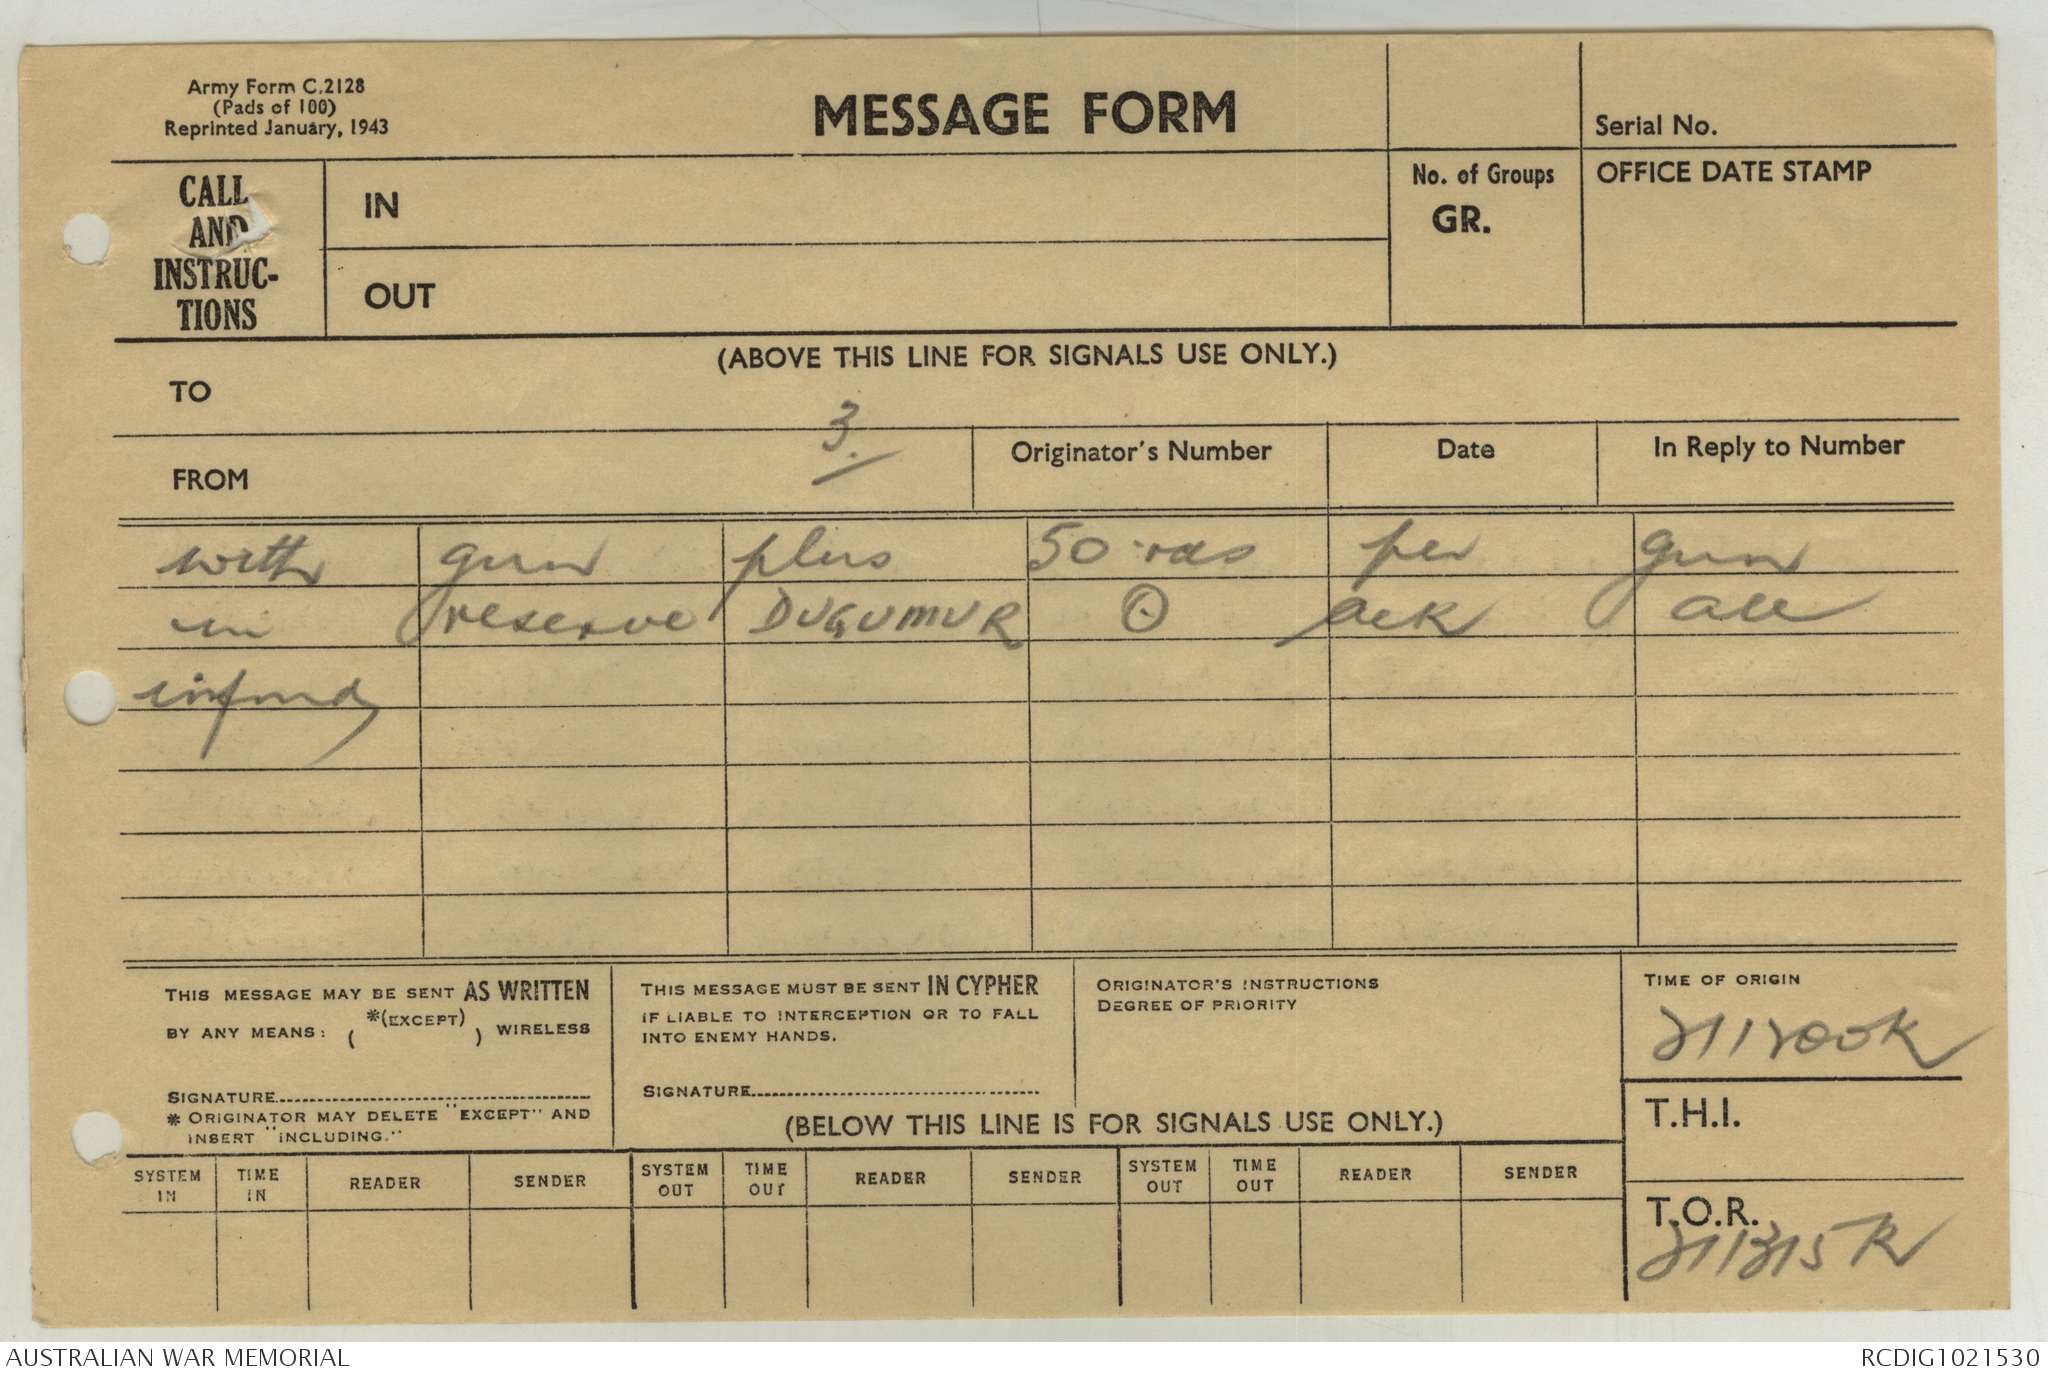 Army Form C.2128
(Pads of 100)
Reprinted January, 1943
MESSAGE FORM
Serial No.
CALL
AND
INSTRUC-
TIONS
IN
OUT
No. of Groups
GR.
OFFICE DATE STAMP
(ABOVE THIS LINE FOR SIGNALS USE ONLY.)
TO
3.
FROM
Originator's Number
Date
In Reply to Number
with gun plus 50 rds per gun
in reserve DUGUMUR ⊙ ack all
infmd
THIS MESSAGE MAY BE SENT AS WRITTEN
BY ANY MEANS: ( *(EXCEPT) ) WIRELESS
SIGNATURE
* ORIGINATOR MAY DELETE "EXCEPT" AND
INSERT "INCLUDING."
THIS MESSAGE MUST BE SENT IN CYPHER
IF LIABLE TO INTERCEPTION OR TO FALL
INTO ENEMY HANDS.
SIGNATURE
ORIGINATOR'S INSTRUCTIONS
DEGREE OF PRIORITY
(BELOW THIS LINE IS FOR SIGNALS USE ONLY.)
TIME OF ORIGIN
211200K
T.H.I.
T.O.R.
211315K
SYSTEM IN TIME IN READER SENDER SYSTEM OUT TIME OUT READER SENDER SYSTEM OUT TIME OUT READER SENDER
AUSTRALIAN WAR MEMORIAL
RCDIG1021530